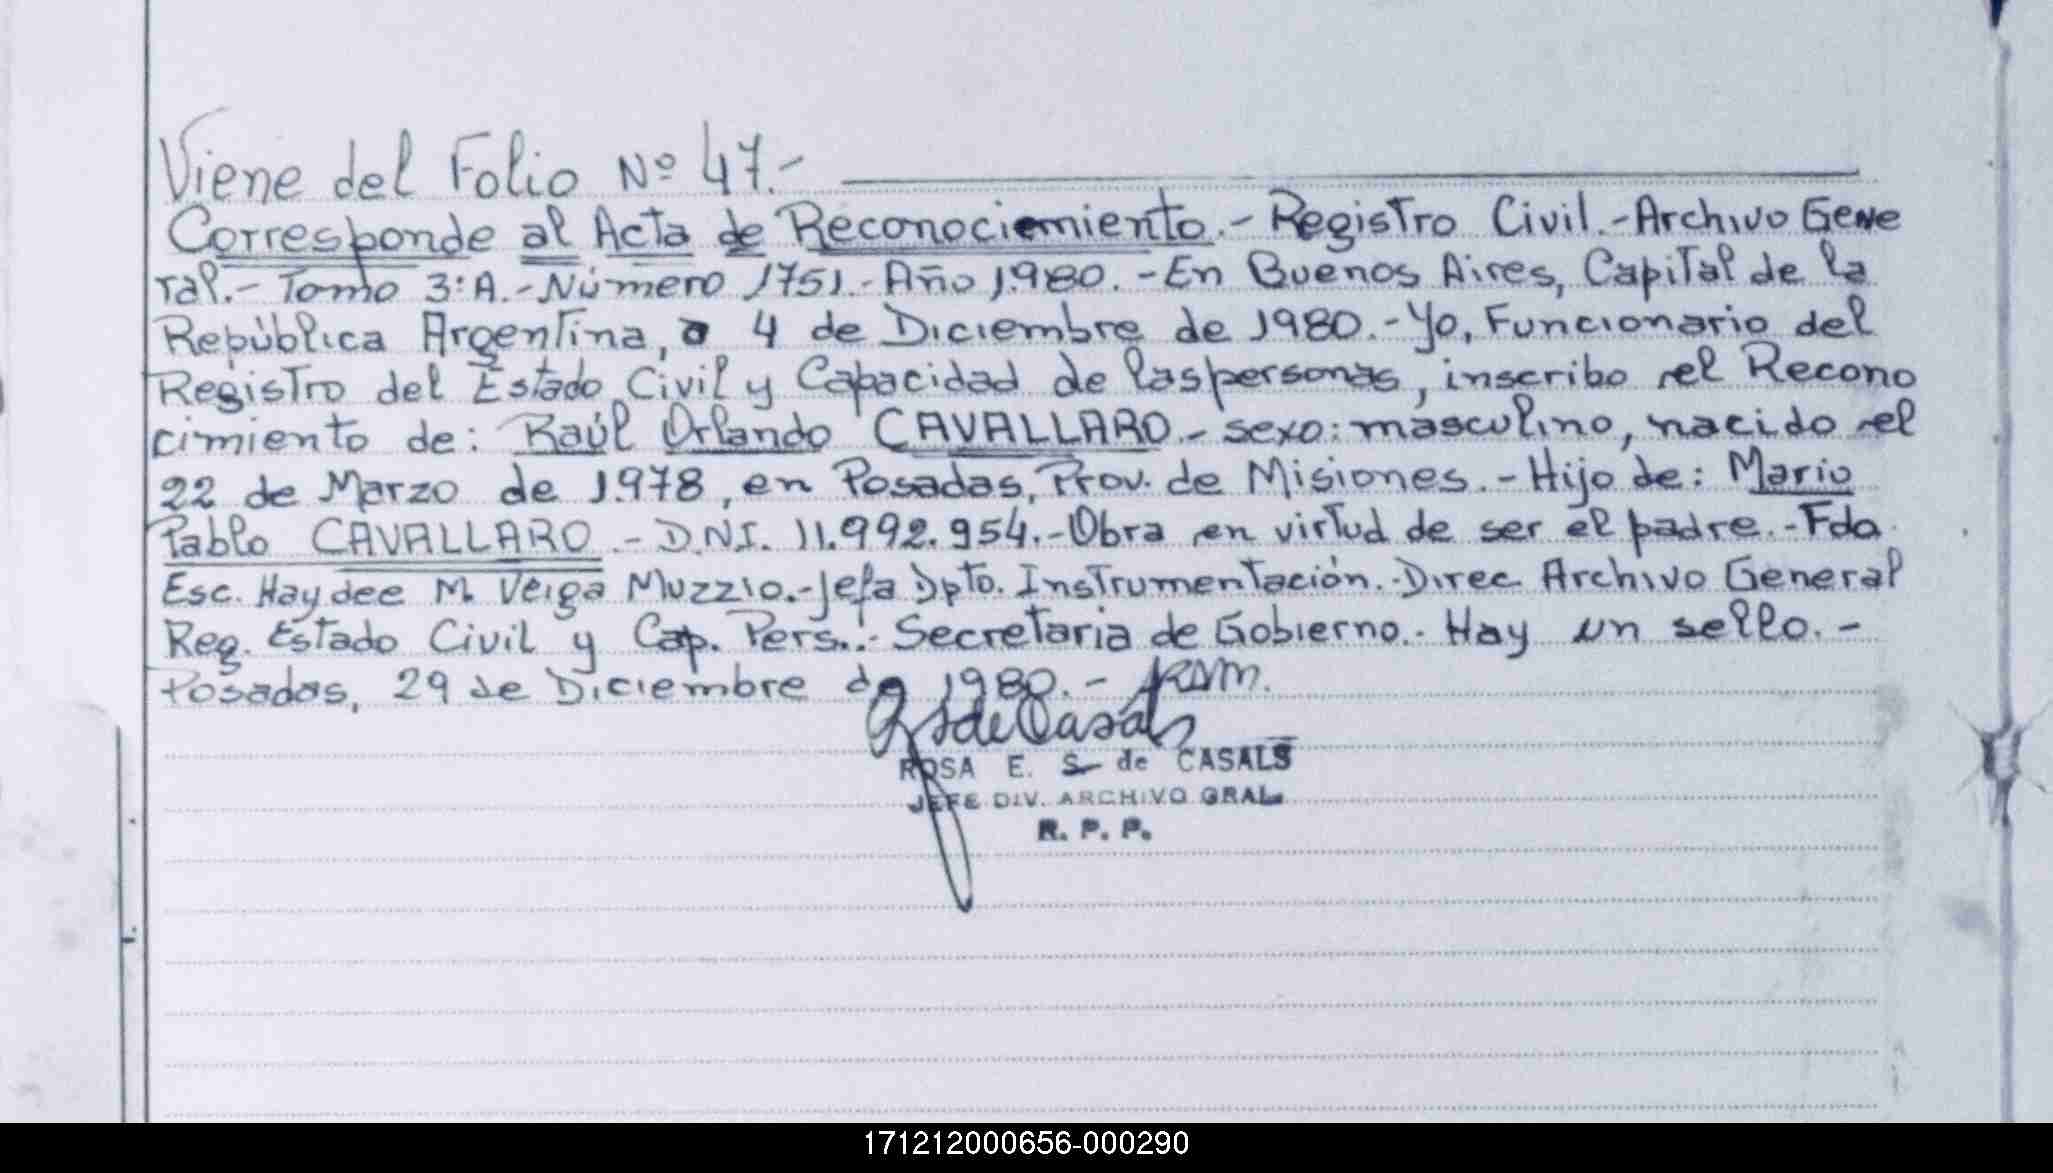 Viene del Folio Nº 47.-
Corresponde al Acta de Reconociemiento.- Registro Civil.- Archivo Gene
ral.- Tomo 3:A.- Número 1751.- Año 1.980.- En Buenos Aires, Capital de la
República Argentina, a 4 de Diciembre de 1980.- Yo, Funcionario del
Registro del Estado Civil y Capacidad de las personas, inscribo el Recono
cimiento de: Raúl Orlando CAVALLARO.- sexo: masculino, nacido el
22 de Marzo de 1.978, en Posadas, Prov. de Misiones.- Hijo de: Mario
Pablo CAVALLARO.- D.N.I. 11.992.954.- Obra en virtud de ser el padre.- Fdo.
Esc. Haydee M. Veiga Muzzio.- Jefa Dpto. Instrumentación.- Direc. Archivo General
Reg. Estado Civil y Cap. Pers..- Secretaria de Gobierno.- Hay un sello.-
Posadas, 29 de Diciembre de 1980.-
de Casals
ROSA E. S. de CASALS
JEFE DIV. ARCHIVO GRAL.
R. P. P.
171212000656-000290